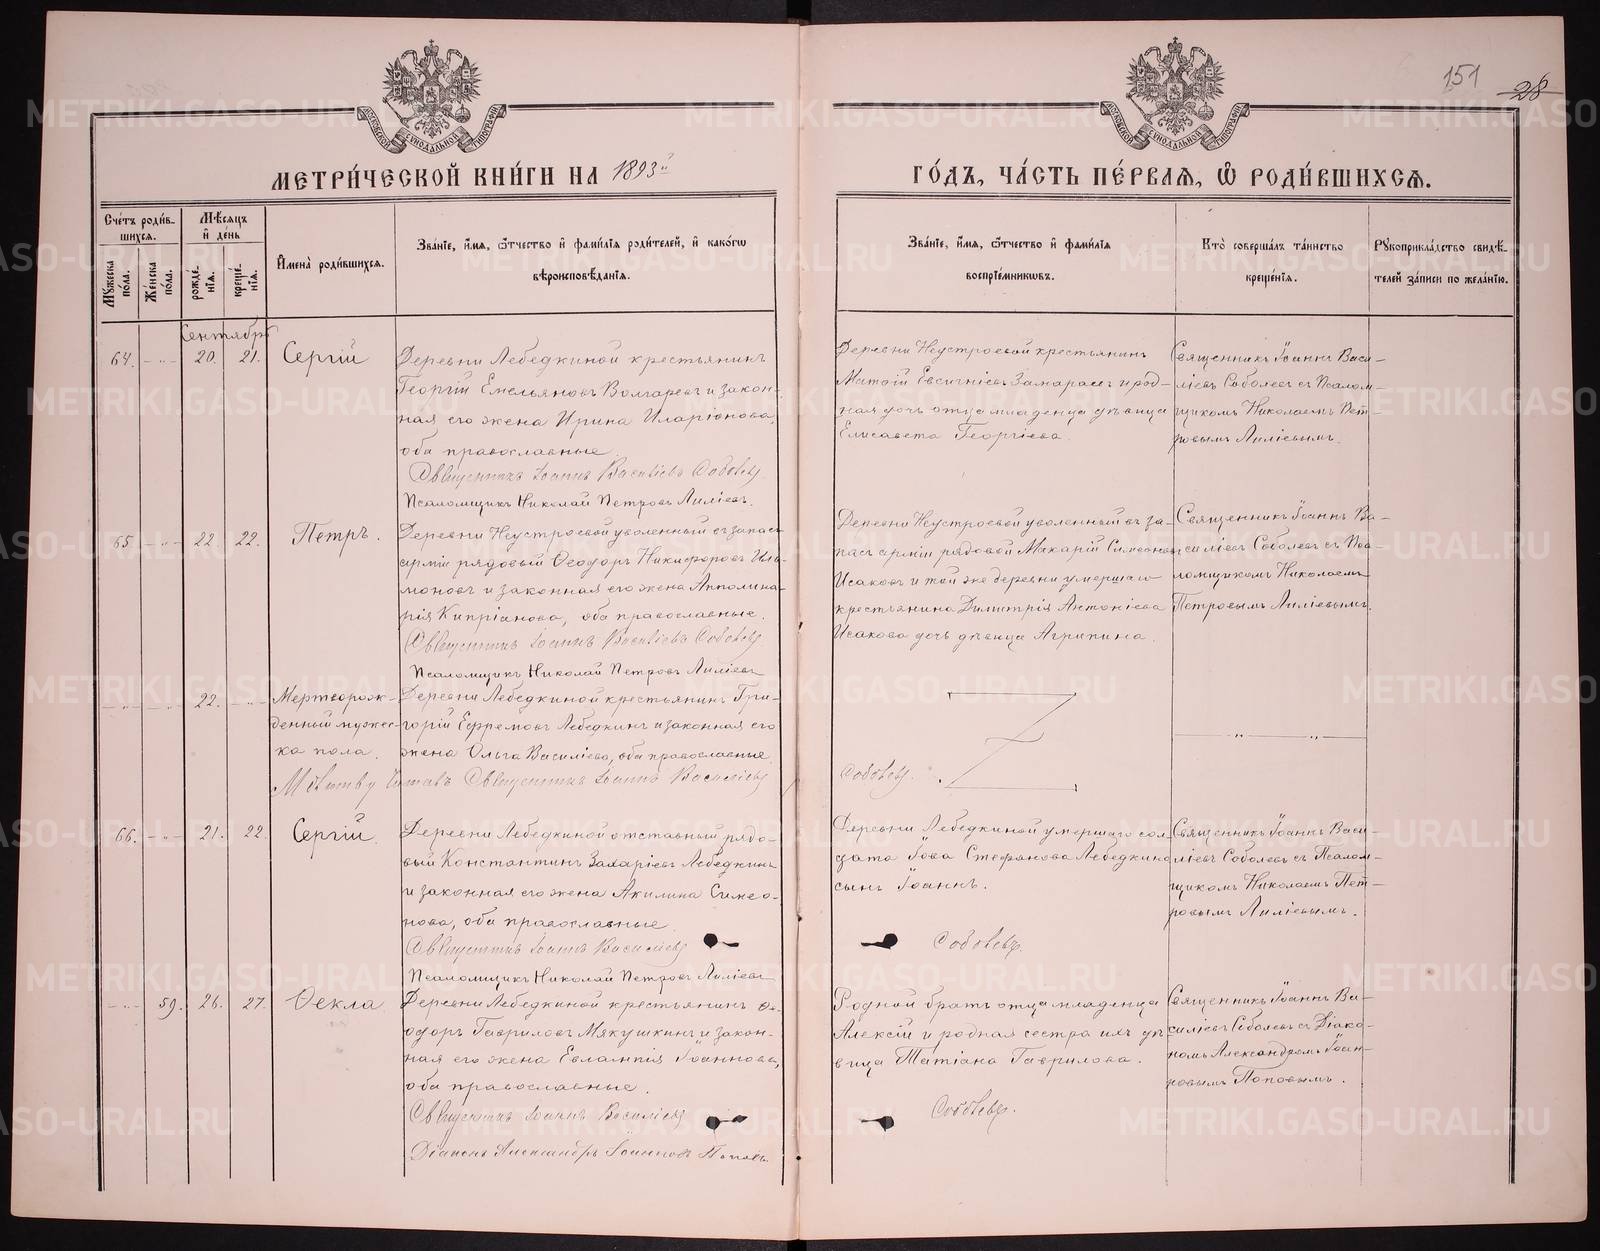 151
28
МОСКОВСКОЙ СѴНОДАЛЬНОЙ ТИПОГРАФІИ
МОСКОВСКОЙ СѴНОДАЛЬНОЙ ТИПОГРАФІИ
МЕТРИ́ЧЕСКОЙ КНИ́ГИ НА 1893й
ГО́ДЪ, ЧА́СТЬ ПЕ́РВАЯ, Ѡ РОДИ́ВШИХСЯ.
Сче́тъ роди́в-
шихся.
Му́жеска по́ла.
Же́нска по́ла.
Мѣ́сяцъ
и҆ де́нь
рожде́-
нїя.
креще́-
нїя.
И҆мена̀ роди́вшихся.
Зва́нїе, и҆́мя, ѻ҆́тчество и҆ фами́лїя роди́телей, и҆ како́гѡ
вѣроисповѣ́данїя.
Зва́нїе, и҆́мя, ѻ҆́тчество и҆ фами́лїя
воспрїе́мниковъ.
Кто̀ соверша́лъ та́инство
креще́нїя.
Рꙋкоприкла́дство свидѣ́-
телей за́писи по жела́нїю.
Сентябрь
64. - „ - 20. 21. Сергій
Деревни Лебедкиной крестьянинъ
Георгій Емельяновъ Волгаревъ и закон-
ная его жена Ирина Иларіонова,
оба православные.
Священникъ Іоаннъ Василіевъ Соболевъ
Псаломщикъ Николай Петровъ Лиліевъ.
Деревни Неустроевой крестьянинъ
Матѳій Евсигніевъ Замараевъ и род-
ная дочь отца младенца дѣвица
Елисавета Георгіева.
Священникъ Іоаннъ Васи-
ліевъ Соболевъ съ Псалом-
щикомъ Николаемъ Пет-
ровымъ Лиліевымъ.
65. - „ - 22. 22. Петръ.
Деревни Неустроевой уволенный въ запасъ
арміи рядовый Ѳеодоръ Никифоровъ
и законная его жена Апполина-
рія Кипріанова, оба православные.
Священникъ Іоаннъ Василіевъ Соболевъ
Псаломщикъ Николай Петровъ Лиліевъ
Деревни Неустроевой уволенный въ за-
пасъ арміи рядовой Макарій Симеоновъ
Исаковъ и той же деревни умершаго
крестьянина Димитрія Антоніева
Исакова дочь дѣвица Агрипина.
Священникъ Іоаннъ Ва-
силіевъ Соболевъ съ Пса-
ломщикомъ Николаемъ
Петровымъ Лиліевымъ.
- „ - - „ - 22. - „ - Мертворож-
денный мужес-
ка пола.
Деревни Лебедкиной крестьянинъ Гри-
горій Ефремовъ Лебедкинъ и законная его
жена Ольга Василіева, оба православные
Молитву читалъ Священникъ Іоаннъ Василіевъ
Соболевъ.
- „ -
66. - „ - 21. 22. Сергій.
Деревни Лебедкиной отставный рядо-
вый Константинъ Захаріевъ Лебедкинъ
и законная его жена Акилина Симео-
нова, оба православные.
Священникъ Іоаннъ Василіевъ
Псаломщикъ Николай Петровъ Лиліевъ
Деревни Лебедкиной умершаго сол-
дата Іова Стефанова Лебедкина
сынъ Іоаннъ.
Соболевъ.
Священникъ Іоаннъ Васи-
ліевъ Соболевъ съ Псалом-
щикомъ Николаемъ Пет-
ровымъ Лиліевымъ.
- „ - 59. 26. 27. Ѳекла
Деревни Лебедкиной крестьянинъ Ѳе-
одоръ Гавриловъ Мякушкинъ и закон-
ная его жена Евлампія Іоаннова,
оба православные.
Священникъ Іоаннъ Василіевъ
Діаконъ Александръ Іоанновъ Поповъ.
Родной братъ отца младенца
Алексій и родная сестра ихъ дѣ-
вица Татіана Гаврилова.
Соболевъ.
Священникъ Іоаннъ Ва-
силіевъ Соболевъ съ Діако-
номъ Александромъ Іоан-
новымъ Поповымъ.
METRIKI.GASO-URAL.RU